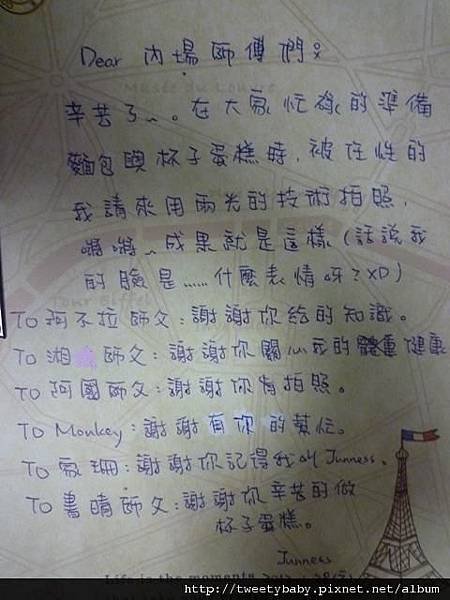 Dear 內場師傅們:
辛苦了~。在大家忙碌的準備
麵包與杯子蛋糕時,被任性的
我請來用兩光的技術拍照,
噹噹~成果就是這樣(話說我
的臉是......什麼表情呀?XD)
TO 阿不拉師父:謝謝你給的知識。
TO 湘 師父:謝謝你關心我的體重健康
TO 阿國師父:謝謝你有拍照。
TO Monkey:謝謝有你的幫忙。
TO 家珊:謝謝你記得我叫 Junness。
TO 書晴師父:謝謝你辛苦的做
杯子蛋糕。
Junness
Life is the moments
http://tweetybaby.pixnet.net/album